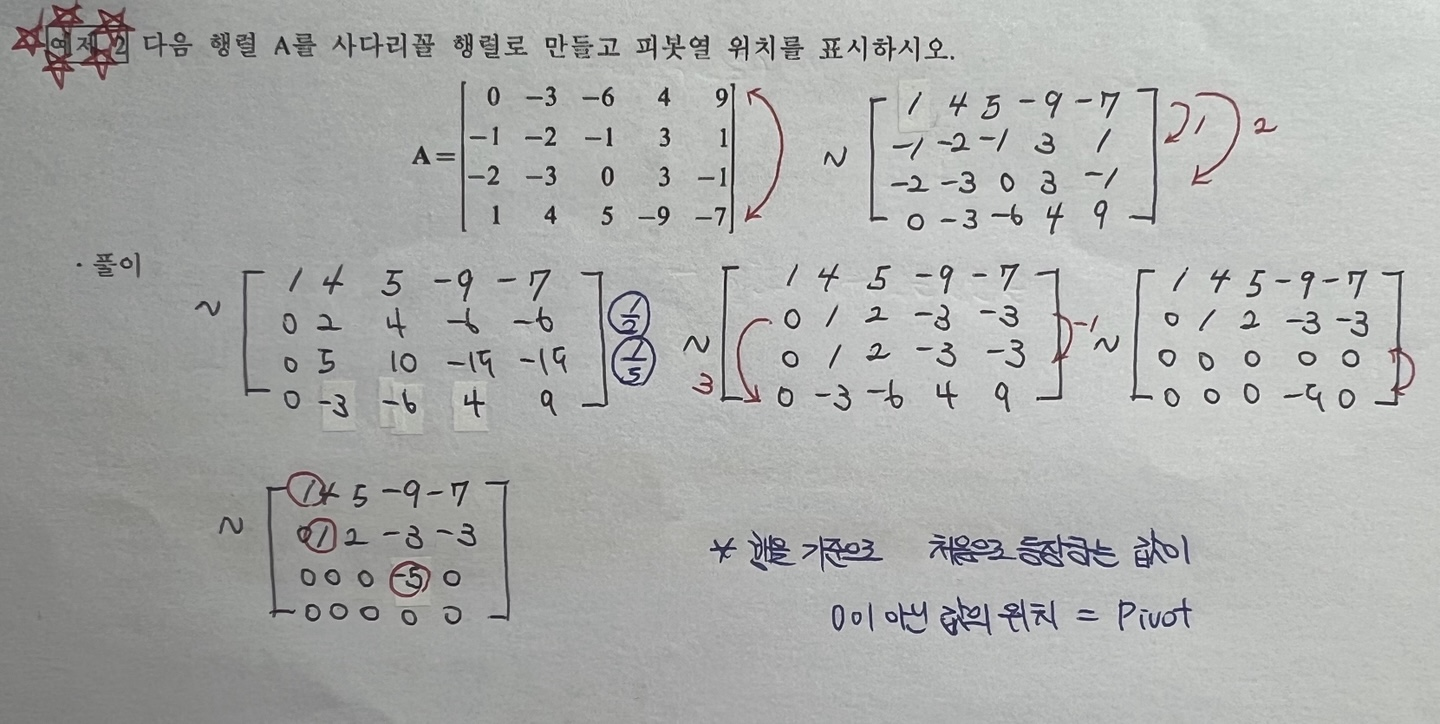 예제 2 다음 행렬 A를 사다리꼴 행렬로 만들고 피봇열 위치를 표시하시오.
0 −3 −6 4 9
−1 −2 −1 3 1
A= −2 −3 0 3 −1
1 4 5 −9 −7
~
1 4 5 -9 -7
-1 -2 -1 3 1
-2 -3 0 3 -1
0 -3 -6 4 9
1
2
· 풀이
~
1 4 5 -9 -7
0 2 4 -6 -6
0 5 10 -15 -15
0 -3 -6 4 9
1/2
1/5
~
3
1 4 5 -9 -7
0 1 2 -3 -3
0 1 2 -3 -3
0 -3 -6 4 9
-1
~
1 4 5 -9 -7
0 1 2 -3 -3
0 0 0 0 0
0 0 0 -5 0
~
1 4 5 -9 -7
0 1 2 -3 -3
0 0 0 -5 0
0 0 0 0 0
* 행을 기준으로 처음으로 등장하는 값이
0이 아닌 값의 위치 = Pivot